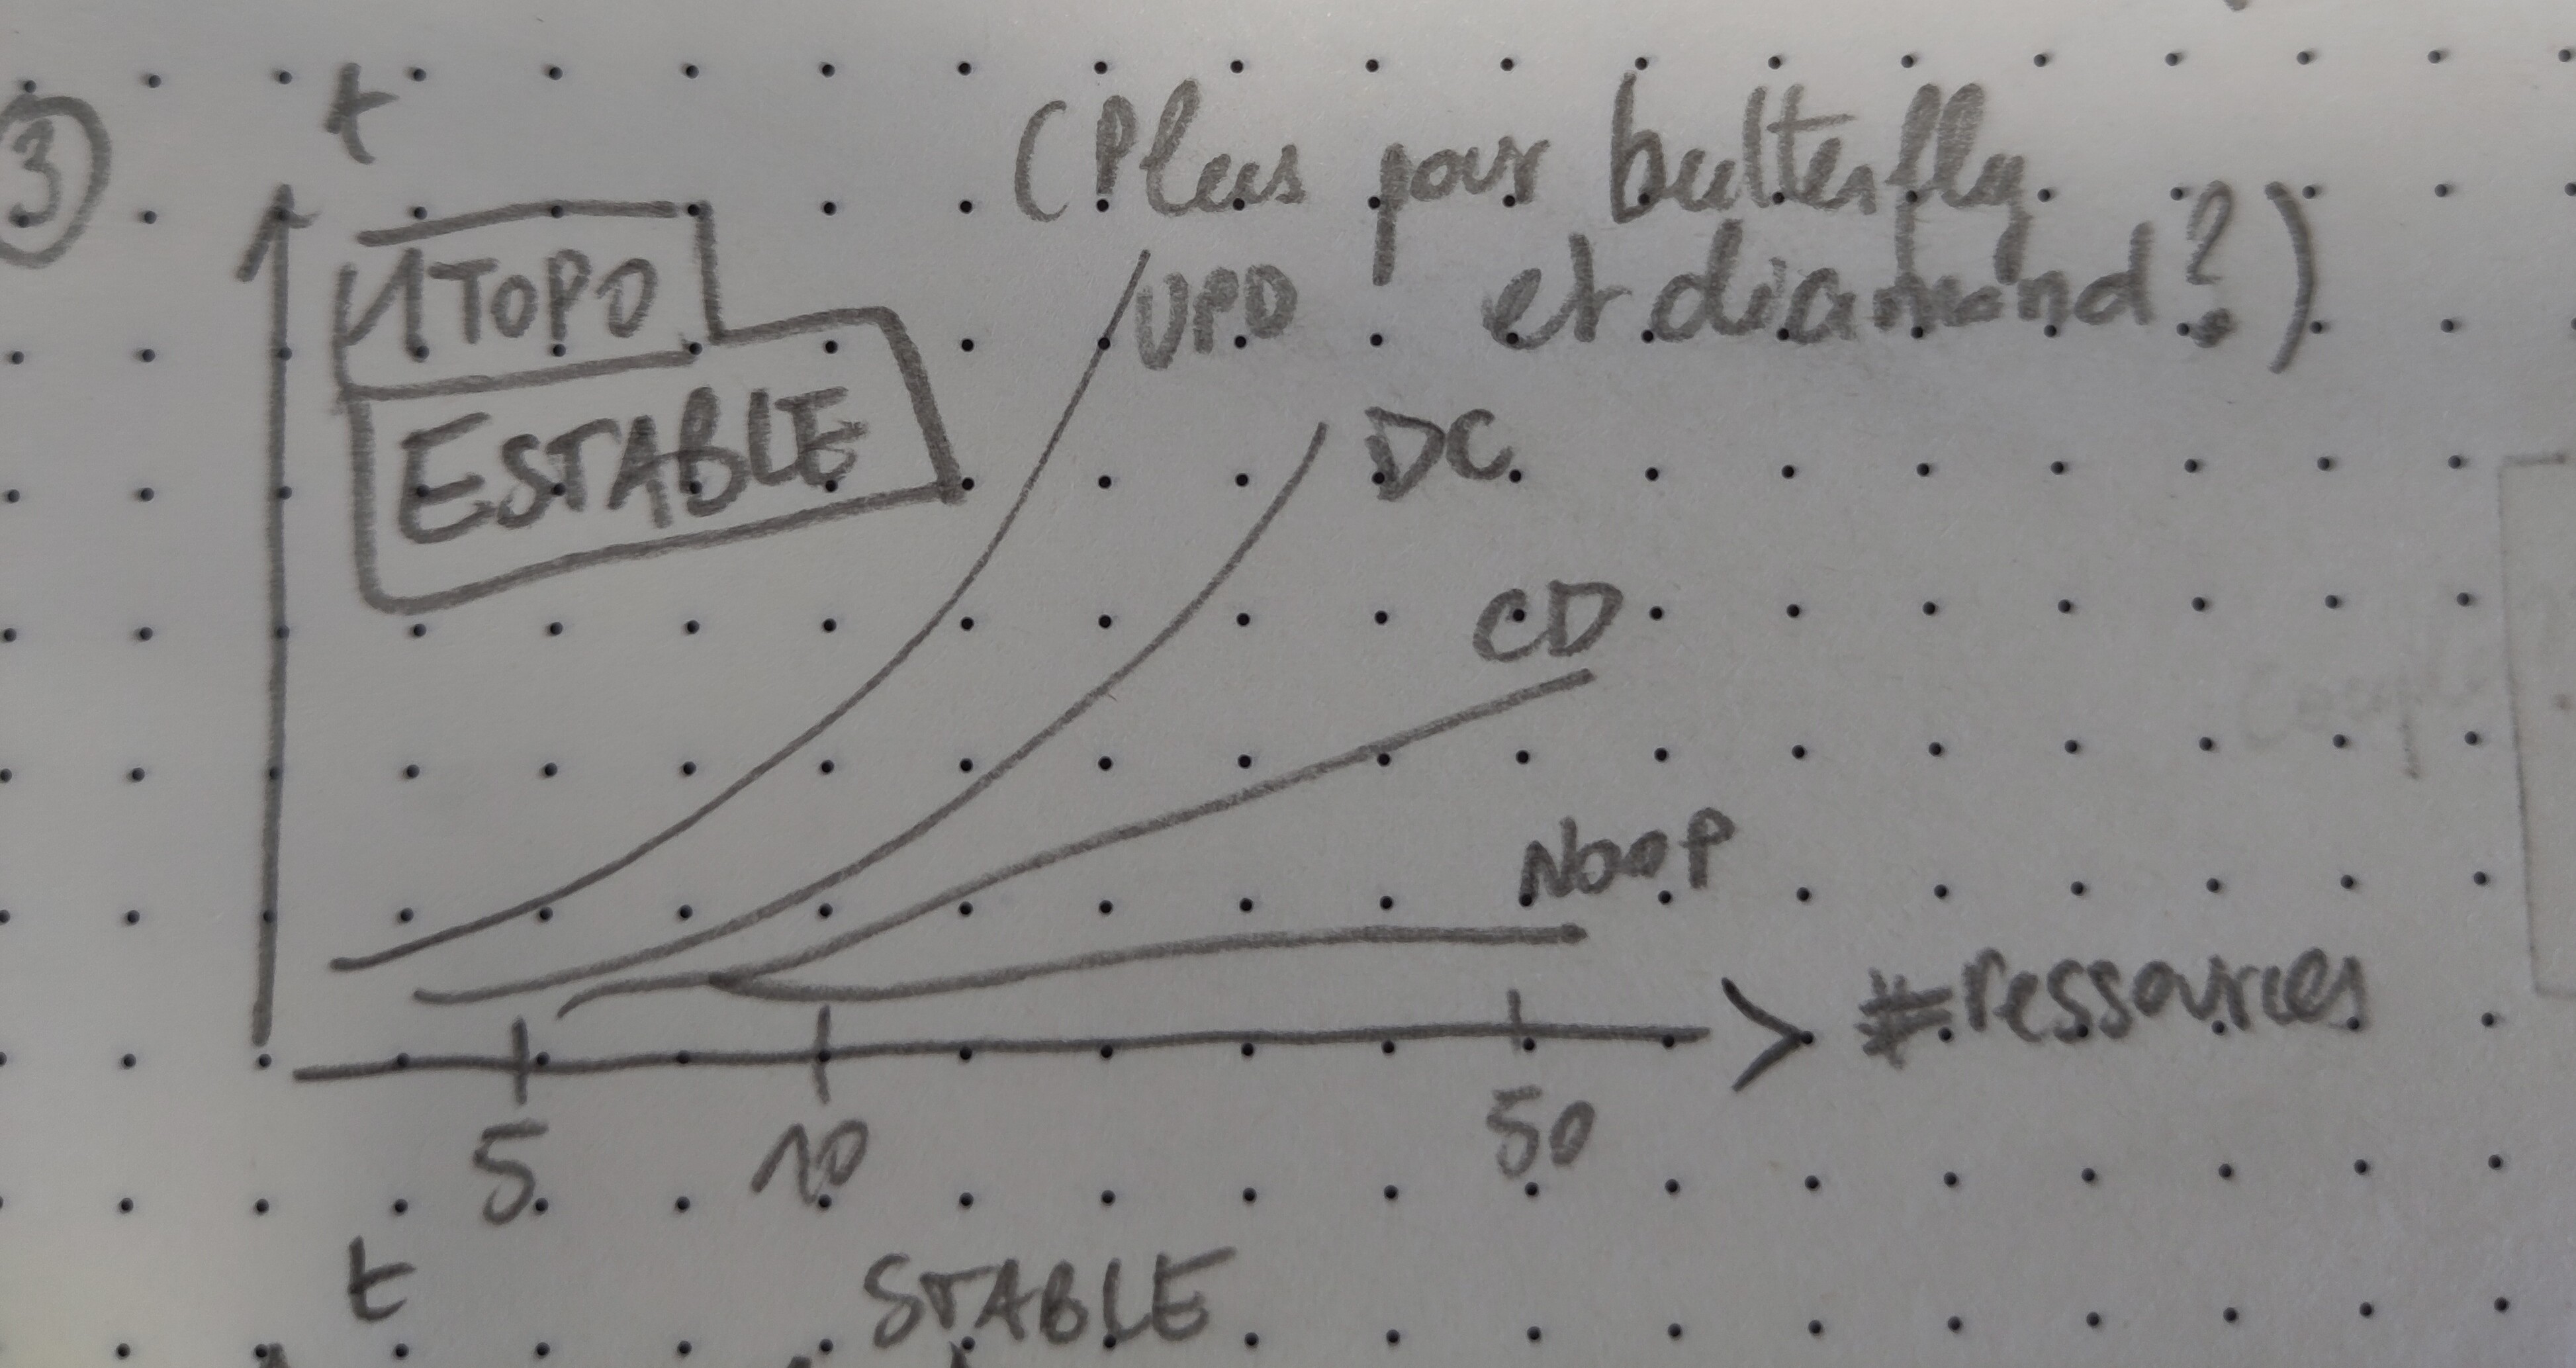 ③
t
(Plus pour butterfly
et diamand?)
1 TOPO
ESTABLE
UPD
DC
CD
NOOP
#ressources
5 10 50
t
STABLE